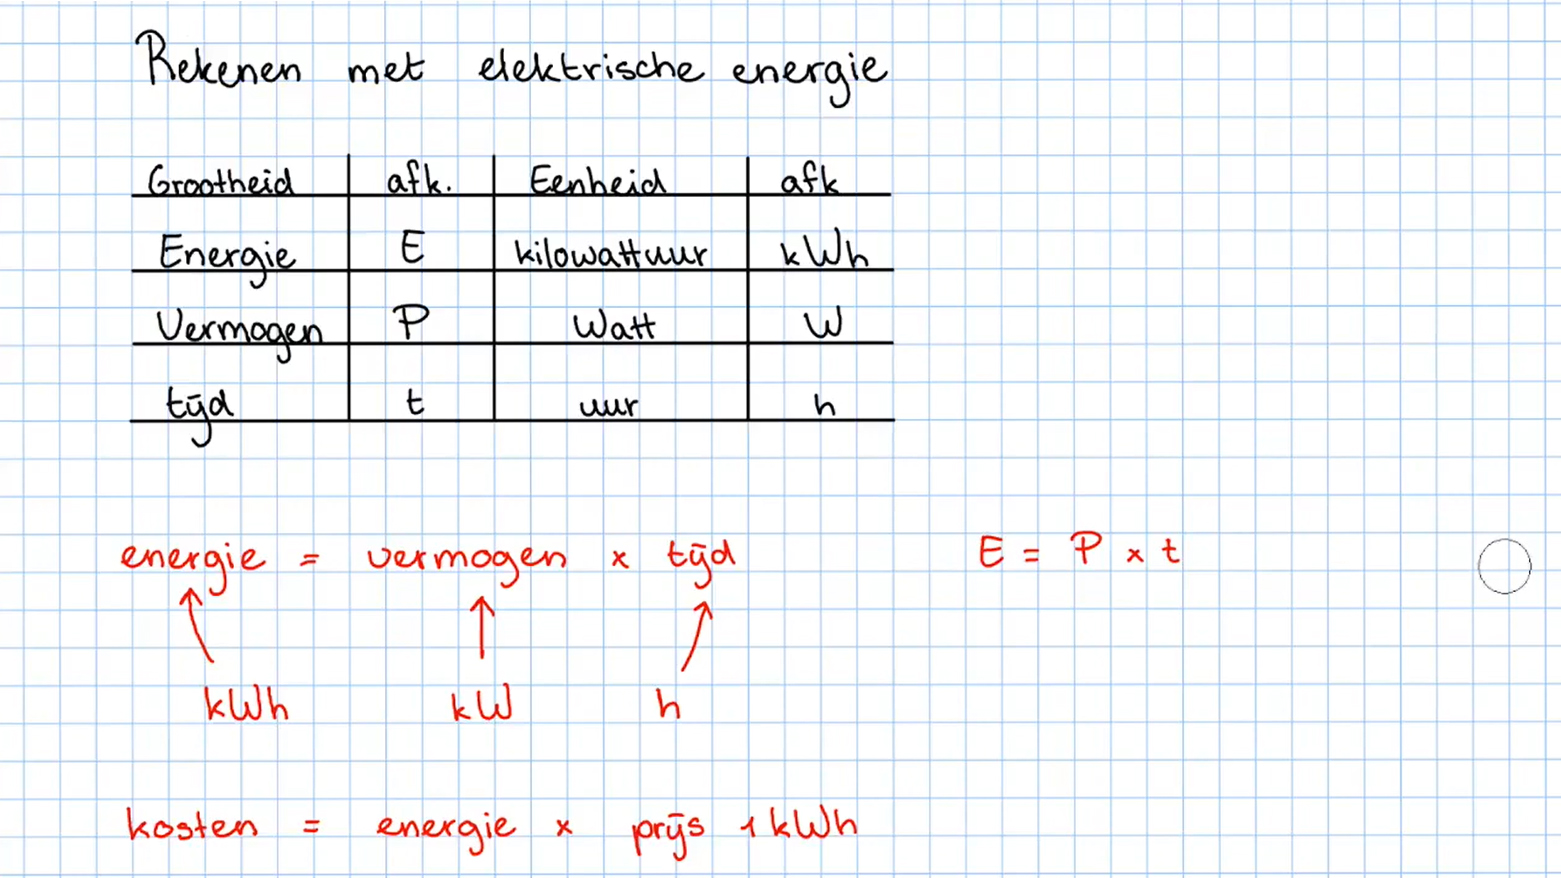 Rekenen met elektrische energie
Grootheid afk. Eenheid afk
Energie E kilowattuur kWh
Vermogen P Watt W
tijd t uur h
energie = vermogen x tijd E = P x t
kWh kW h
kosten = energie x prijs 1 kWh